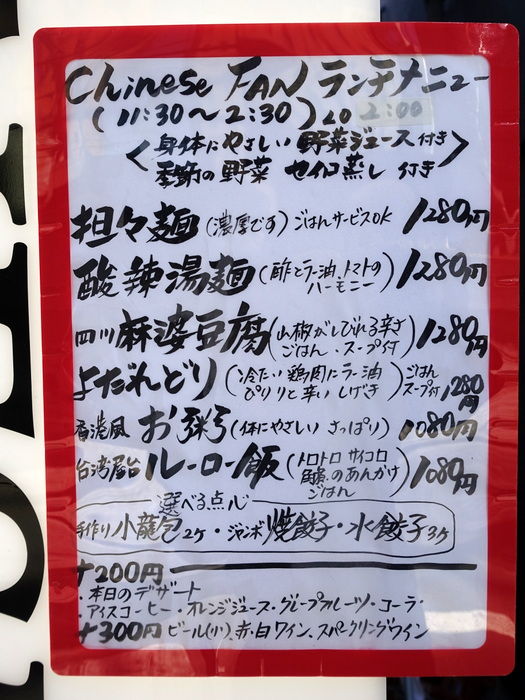 Chinese FAN ランチメニュー
(11:30〜2:30) LO 2:00
<身体にやさしい 野菜ジュース付き>
季節の野菜 セイロ蒸し 付き
担々麺 (濃厚です) ごはんサービスOK 1280円
酸辣湯麺 (酢とラー油、トマトの ハーモニー) 1280円
四川麻婆豆腐 (山椒がしびれる辛さ ごはん、スープ付) 1280円
よだれどり (冷たい鶏肉にラー油 ぴりりと辛いしげき) ごはん スープ付 1280円
香港風 お粥 (体にやさしい さっぱり) 1080円
台湾屋台 ルーロー飯 (トロトロ サイコロ 角煮のあんかけ ごはん) 1080円
選べる点心
手作り小龍包2ケ・ジャンボ焼餃子・水餃子3ケ
+200円
・本日のデザート
・アイスコーヒー・オレンジジュース・グレープフルーツ・コーラ
+300円 ビール(小)、赤・白ワイン、スパークリングワイン